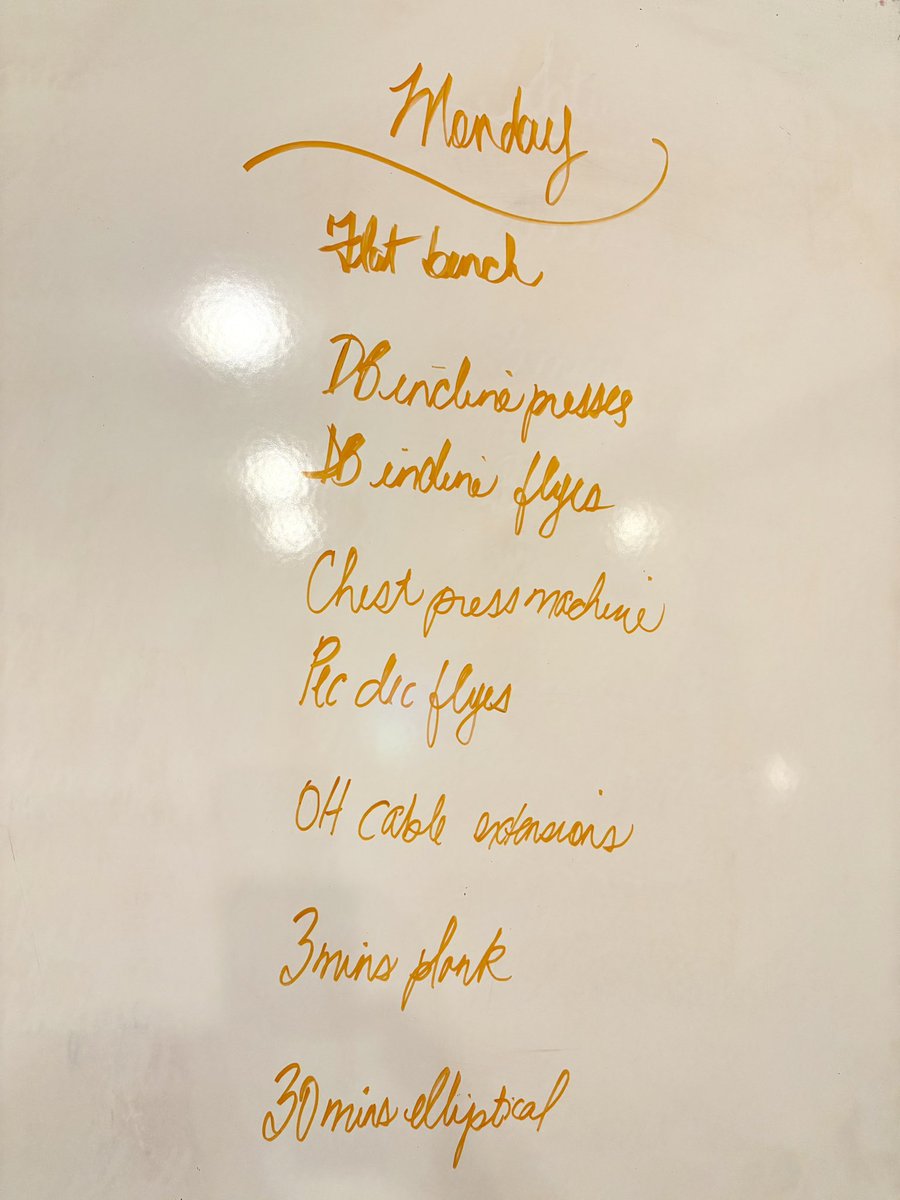 Monday
Flat bench
DB incline presses
DB incline flyes
Chest press machine
Pec dec flyes
OH cable extensions
3 mins plank
30 mins elliptical